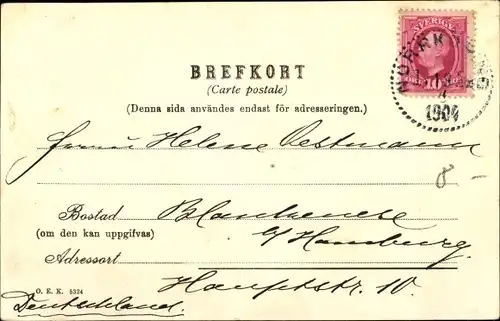 SVERIGE
1904
BREFKORT
(Carte postale)
(Denna sida användes endast för adresseringen.)
Helene Oestmann
8 -
Bostad Blankenese
(om den kan uppgifvas) b/ Hamburg.
Adressort
Hauptstr. 10.
O. E. K. 5324
Deutschland.